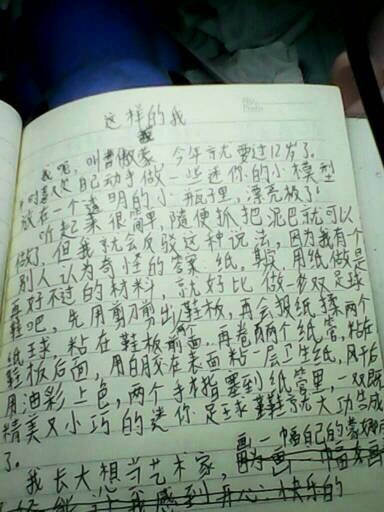 这样的我
我呢,叫曾俶,今年就要过12岁了。
平时喜欢自己动手做一些迷你的小模型
放在一个透明的小瓶子里,漂亮极了。
听起来很简单,随便抓把泥巴就可以
做了,但我就会反驳这种说法,因为我有个
别人认为奇怪的答案,纸,用纸做是
再好不过的材料,就好比做一多双足球
鞋吧,先用剪刀剪出鞋板,再会报纸揉两个
纸球,粘在鞋板前面,再卷两个纸管,粘在
鞋板后面,用白胶在表面粘一层卫生纸,风干后
用油彩上色,两个手指塞到纸管里,一双既
精美又小巧的迷你足球鞋就大功告成
了。
我长大想当艺术家,画一幅自己的
我感到开心快乐的